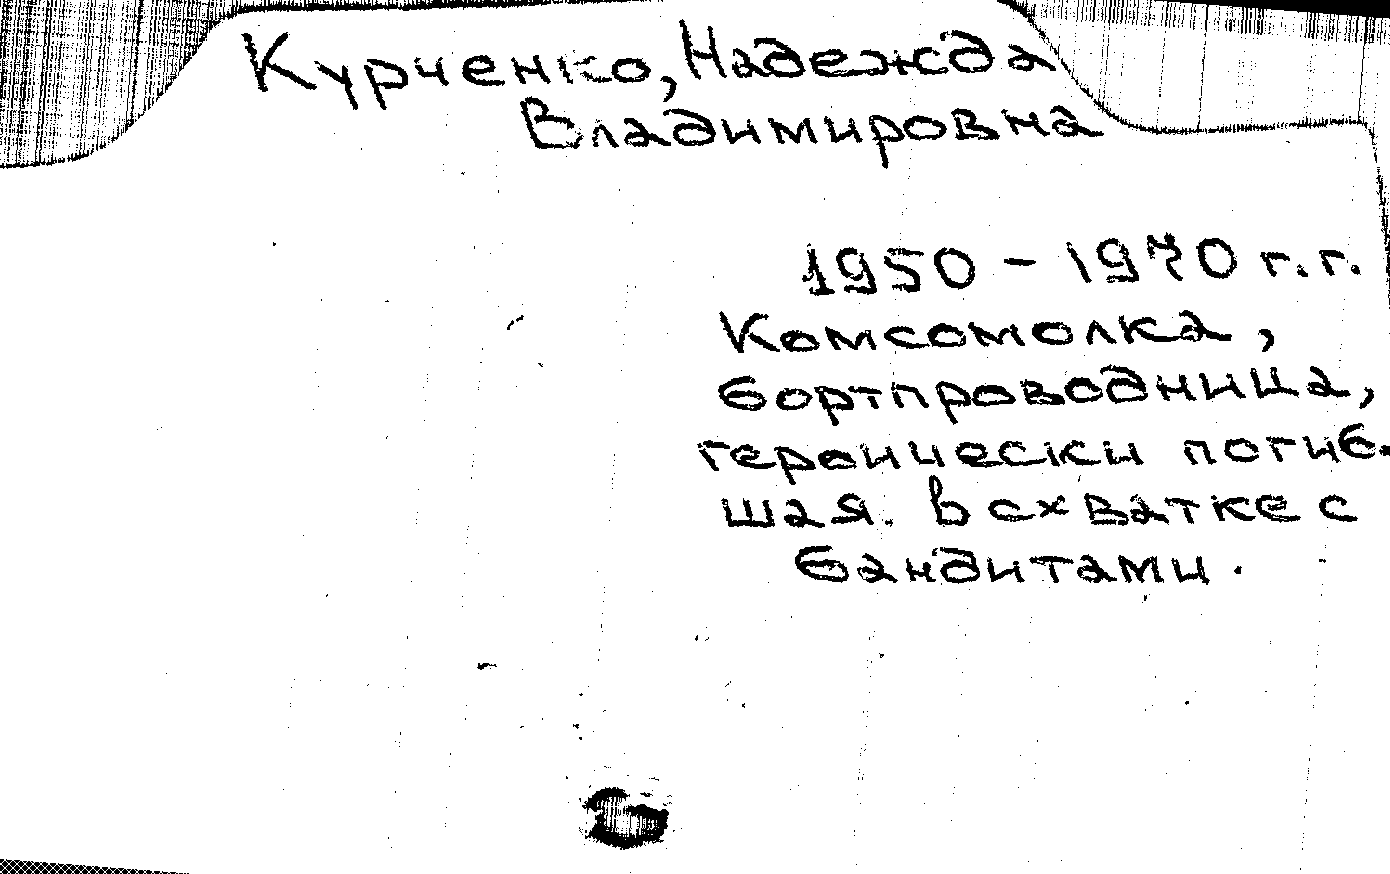 Курченко, Надежда
Владимировна
1950 - 1970 г.г.
Комсомолка,
бортпроводница,
героически погиб-
шая. в схватке с
бандитами.